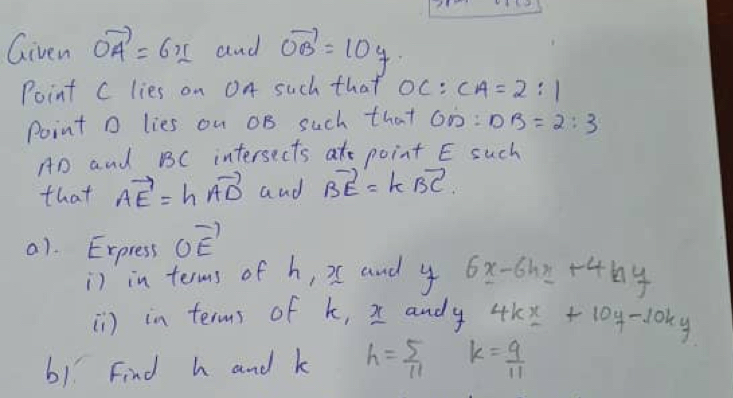 Given OA = 6x and OB = 10y.
Point C lies on OA such that OC : CA = 2 : 1
Point D lies on OB such that OD : DB = 2 : 3
AD and BC intersects at point E such
that AE = h AD and BE = k BC.
a). Express OE
i) in terms of h, x and y 6x-6hx +4hy
ii) in terms of k, x and y 4kx + 10y-10ky
b). Find h and k h = 5/11 k = 9/11